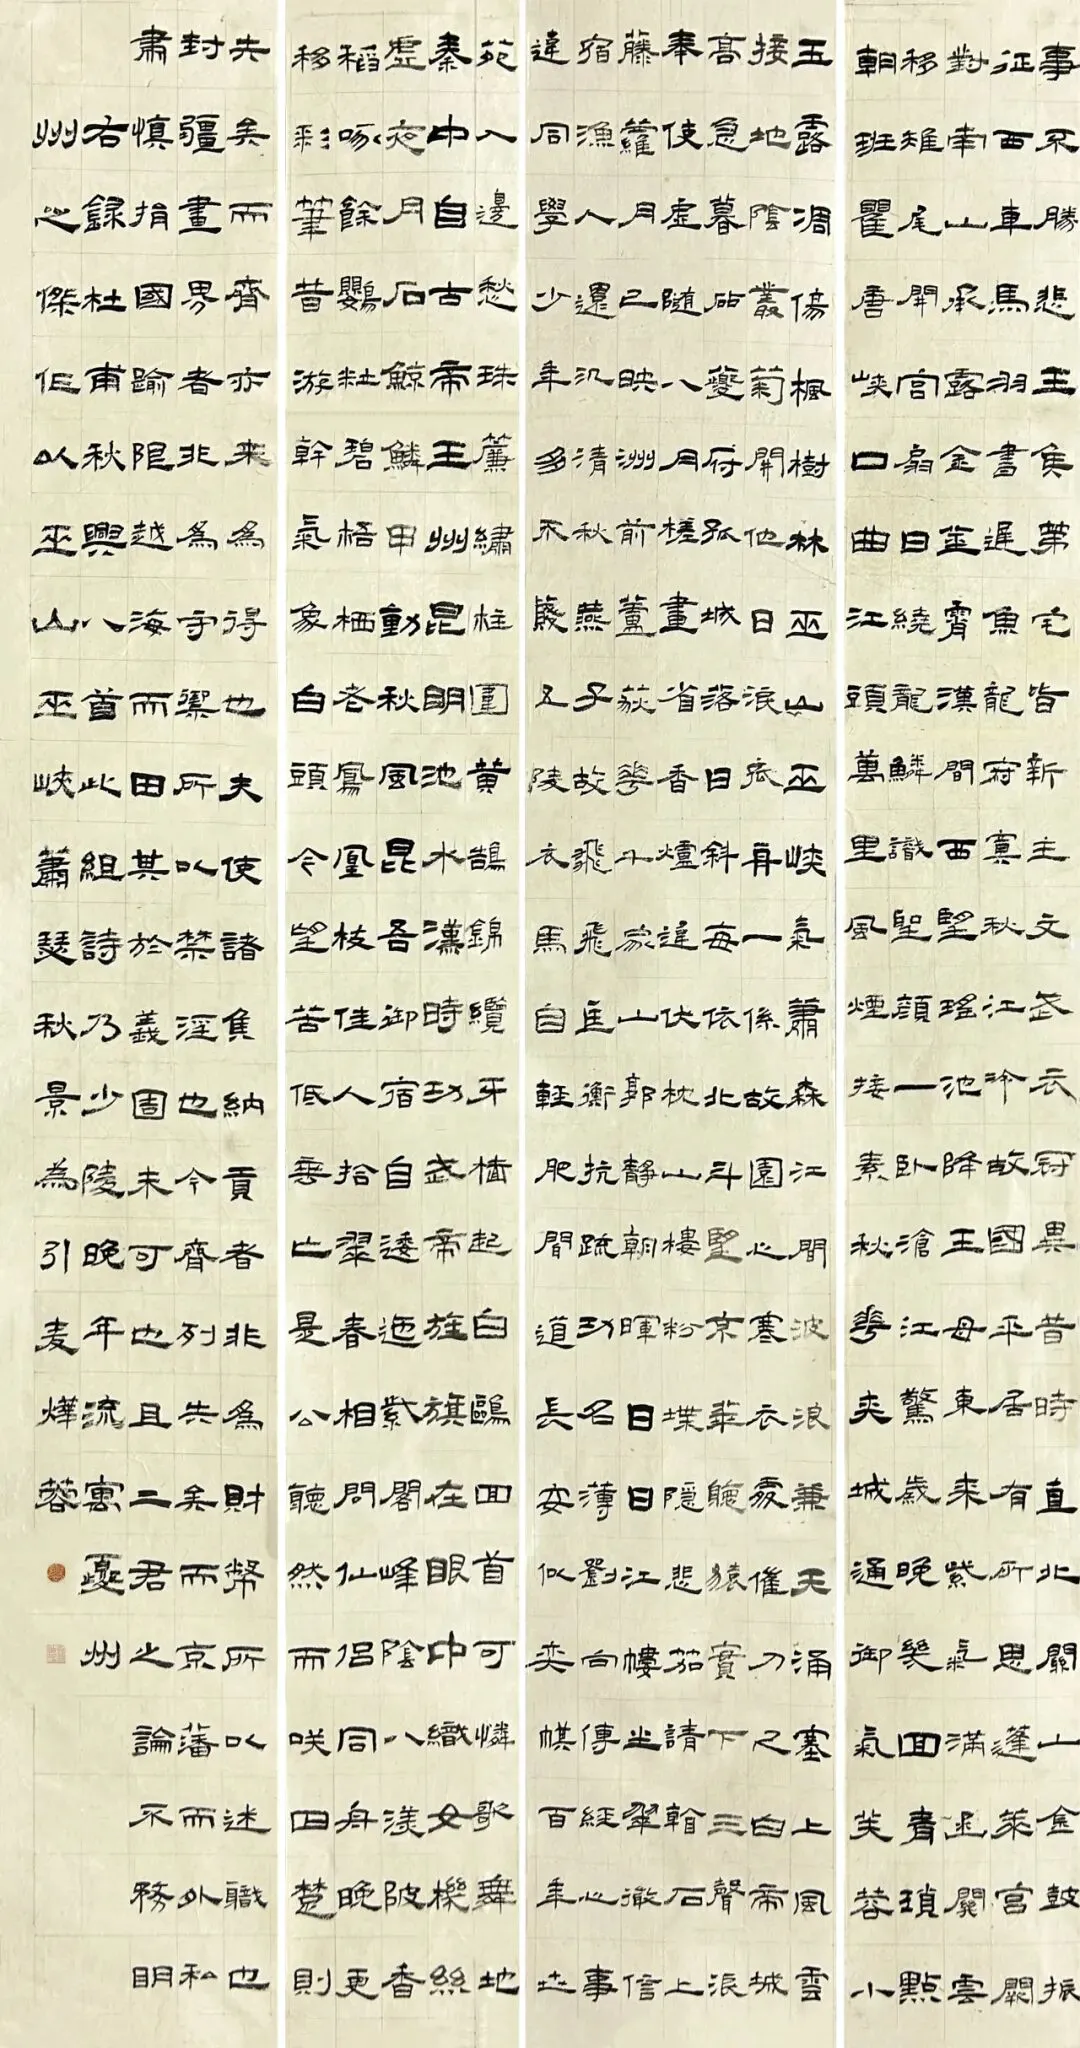 玉露凋傷楓樹林巫山巫峽氣蕭森江間波浪兼天涌塞上風雲
接地陰叢菊開他日淚孤舟一係故園心寒衣處催刀尺白帝城
高急暮砧夔府孤城落日斜每依北斗望京華聽猿實下三聲淚
奉使虛隨八月槎畫省香爐違伏枕山樓粉堞隱悲笳請翰石上
藤蘿月已映洲前蘆荻花千家山郭靜朝暉日日江樓坐翠微信
宿漁人還汎清秋燕子故飛飛匡衡抗疏功名薄劉向傳經心事
違同學少年多不賤五陵衣馬自輕肥聞道長安似奕棋百年世
事不勝悲王侯第宅皆新主文武衣冠異昔時直北關山金鼓振
征西車馬羽書遲魚龍寂寞秋江冷故國平居有所思蓬萊宮闕
對南山承露金莖霄漢間西望瑤池降王母東來紫氣滿函關雲
移雉尾開宮扇日繞龍鱗識聖顏一臥滄江驚歲晚幾回青瑣點
朝班瞿唐峽口曲江頭萬里風煙接素秋花夾城通御氣芙蓉小
苑入邊愁珠簾繡柱圍黃鵠錦纜牙檣起白鷗回首可憐歌舞地
秦中自古帝王州昆明池水漢時功武帝旌旗在眼中織女機絲
虛夜月石鯨鱗甲動秋風昆吾御宿自逶迤紫閣峰陰八渼陂香
稻啄餘鸚粒碧梧栖老鳳凰枝佳人拾翠春相問仙侶同舟晚更
移彩筆昔游幹氣象白頭今望苦低垂亡是公聽然而笑曰楚則
失矣而齊亦未為得也夫使諸侯納貢者非為財幣所以述職也
封疆畫界者非為守禦所以禁淫也今齊列失矣而京藩而外私
肅慎捐國踰限越海而田其於義固未可也且二君之論不務明
右錄杜甫秋興八首此組詩乃少陵晚年流寓夔州
州之傑作以巫山巫峽蕭瑟秋景為引麦燁蓉